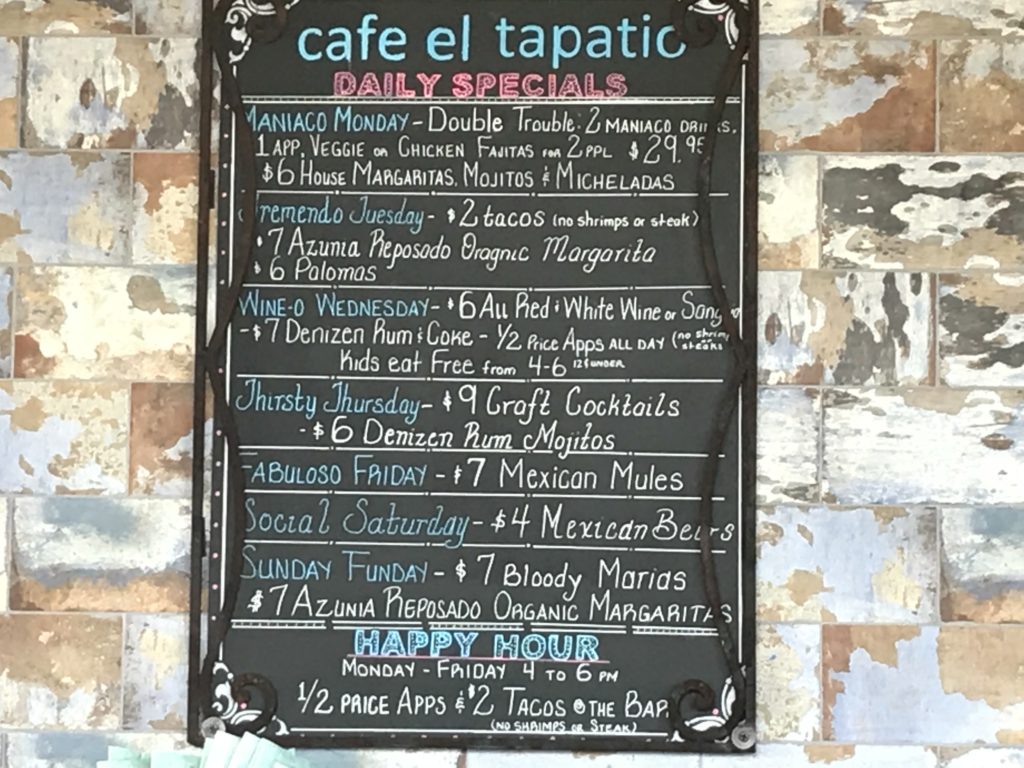 cafe el tapatio
DAILY SPECIALS
MANIACO MONDAY - Double Trouble: 2 MANIACO DRINKS,
1 APP, VEGGIE or CHICKEN FAJITAS FOR 2 PPL $29.95
$6 HOUSE MARGARITAS, MOJITOS & MICHELADAS
Tremendo Tuesday - $2 tacos (no shrimps or steak)
$7 Azunia Reposado Oragnic Margarita
$6 Palomas
WINE-O WEDNESDAY - $6 All Red & White Wine or
- $7 Denizen Rum & Coke - 1/2 Price Apps ALL DAY (no shrimp
steaks
Kids eat Free from 4-6 12 & UNDER
Thirsty Thursday - $9 Craft Cocktails
- $6 Denizen Rum Mojitos
FABULOSO FRIDAY - $7 Mexican Mules
Social Saturday - $4 Mexican Beers
SUNDAY FUNDAY - $7 Bloody Marias
$7 AZUNIA REPOSADO ORGANIC MARGARITAS
HAPPY HOUR
MONDAY - FRIDAY 4 TO 6 PM
1/2 PRICE APPS & $2 TACOS @ THE BAR
(NO SHRIMPS OR STEAK)